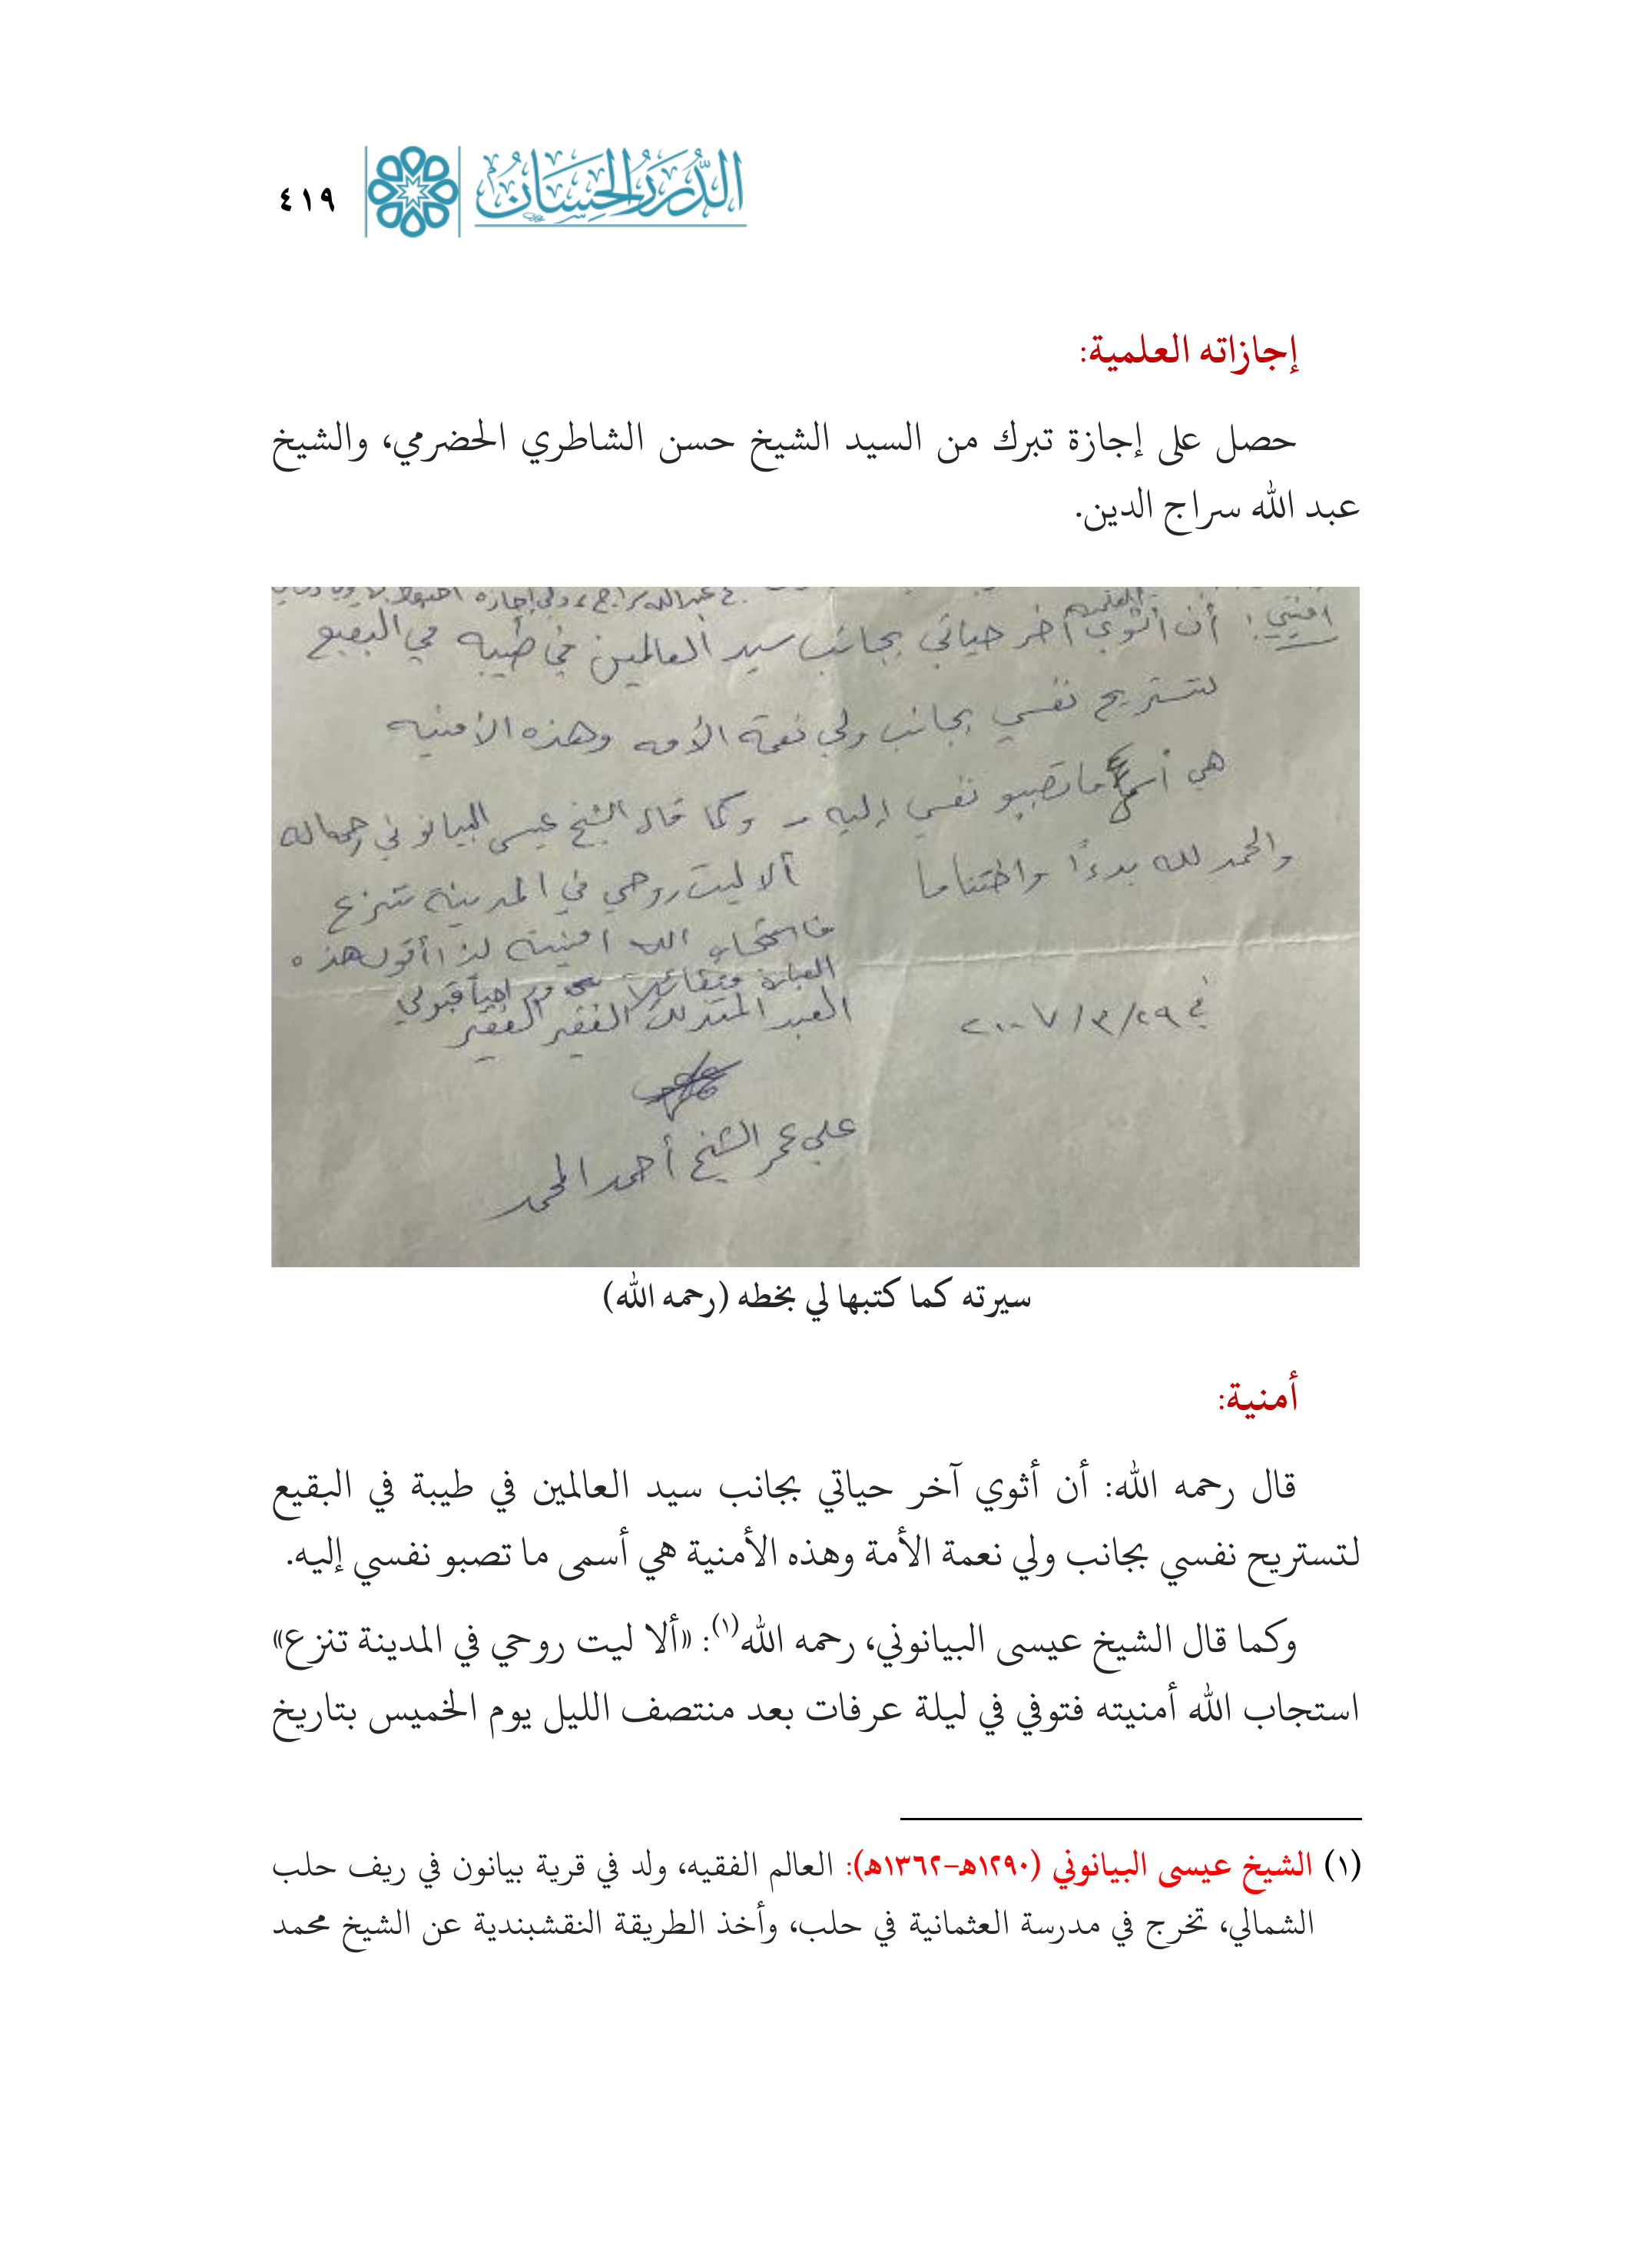 الدرر الحسان
٤١٩
إجازاته العلمية:
حصل على إجازة تبرك من السيد الشيخ حسن الشاطري الحضرمي، والشيخ
عبد الله سراج الدين.
العلمية
امنيتي: أن أثوي آخر حياتي بجانب سيد العالمين في طيبه في البقيع
لتستريح نفسي بجانب ولي نعمة الأمه وهذه الأمنيه
هي أسمى ما تصبو نفسي إليه - وكما قال الشيخ عيسى البيانوني رحمه الله
ألا ليت روحي في المدينة تنزع
والحمد لله بدءاً واختتاما
فاستجاب الله امنيته لذا أقول هذه
العبارة متفائلاً قبولي
العبد المتذلل الفقير الفقير
في ٢٩/٣/٢٠٠٧
علي عمر الشيخ أحمد المحمد
سيرته كما كتبها لي بخطه (رحمه الله)
أمنية:
قال رحمه الله: أن أثوي آخر حياتي بجانب سيد العالمين في طيبة في البقيع
لتستريح نفسي بجانب ولي نعمة الأمة وهذه الأمنية هي أسمى ما تصبو نفسي إليه.
وكما قال الشيخ عيسى البيانوني، رحمه الله(١): «ألا ليت روحي في المدينة تنزع»
استجاب الله أمنيته فتوفي في ليلة عرفات بعد منتصف الليل يوم الخميس بتاريخ
(١) الشيخ عيسى البيانوني (١٢٩٠هـ-١٣٦٢هـ): العالم الفقيه، ولد في قرية بيانون في ريف حلب
الشمالي، تخرج في مدرسة العثمانية في حلب، وأخذ الطريقة النقشبندية عن الشيخ محمد